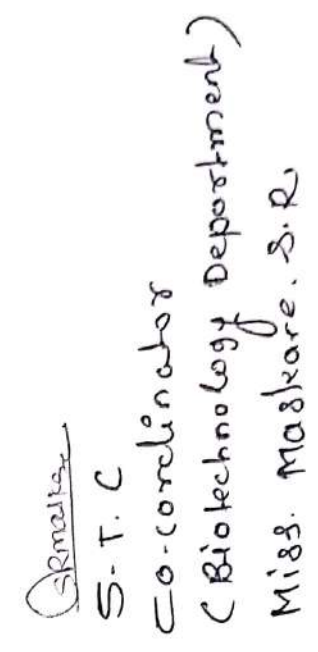 SRmaske
S.T.C
Co-cordinator
(Biotechnology Department)
Miss. Maskare. S.R.